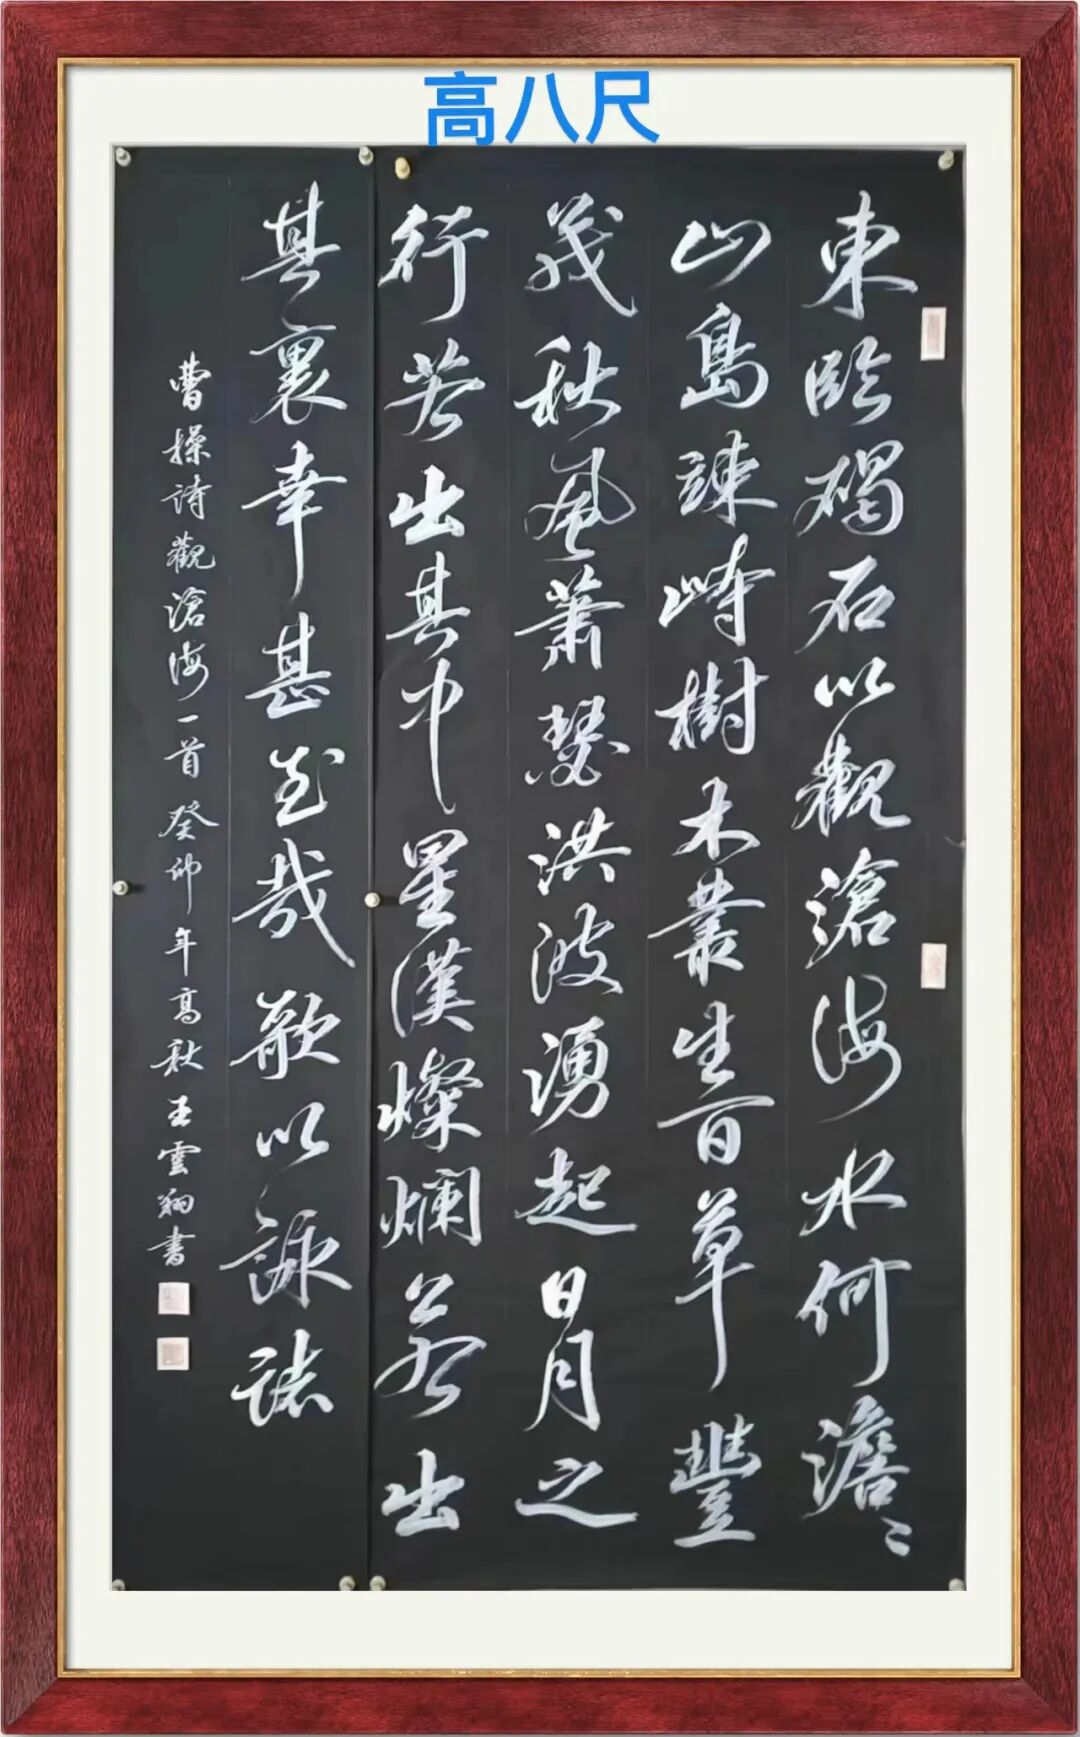 高八尺
東臨碣石以觀滄海水何澹〻
山島竦峙樹木叢生百草豐
茂秋風蕭瑟洪波湧起日月之
行若出其中星漢燦爛若出
其裏幸甚至哉歌以詠誌
曹操詩觀滄海一首癸卯年高秋王雲翔書